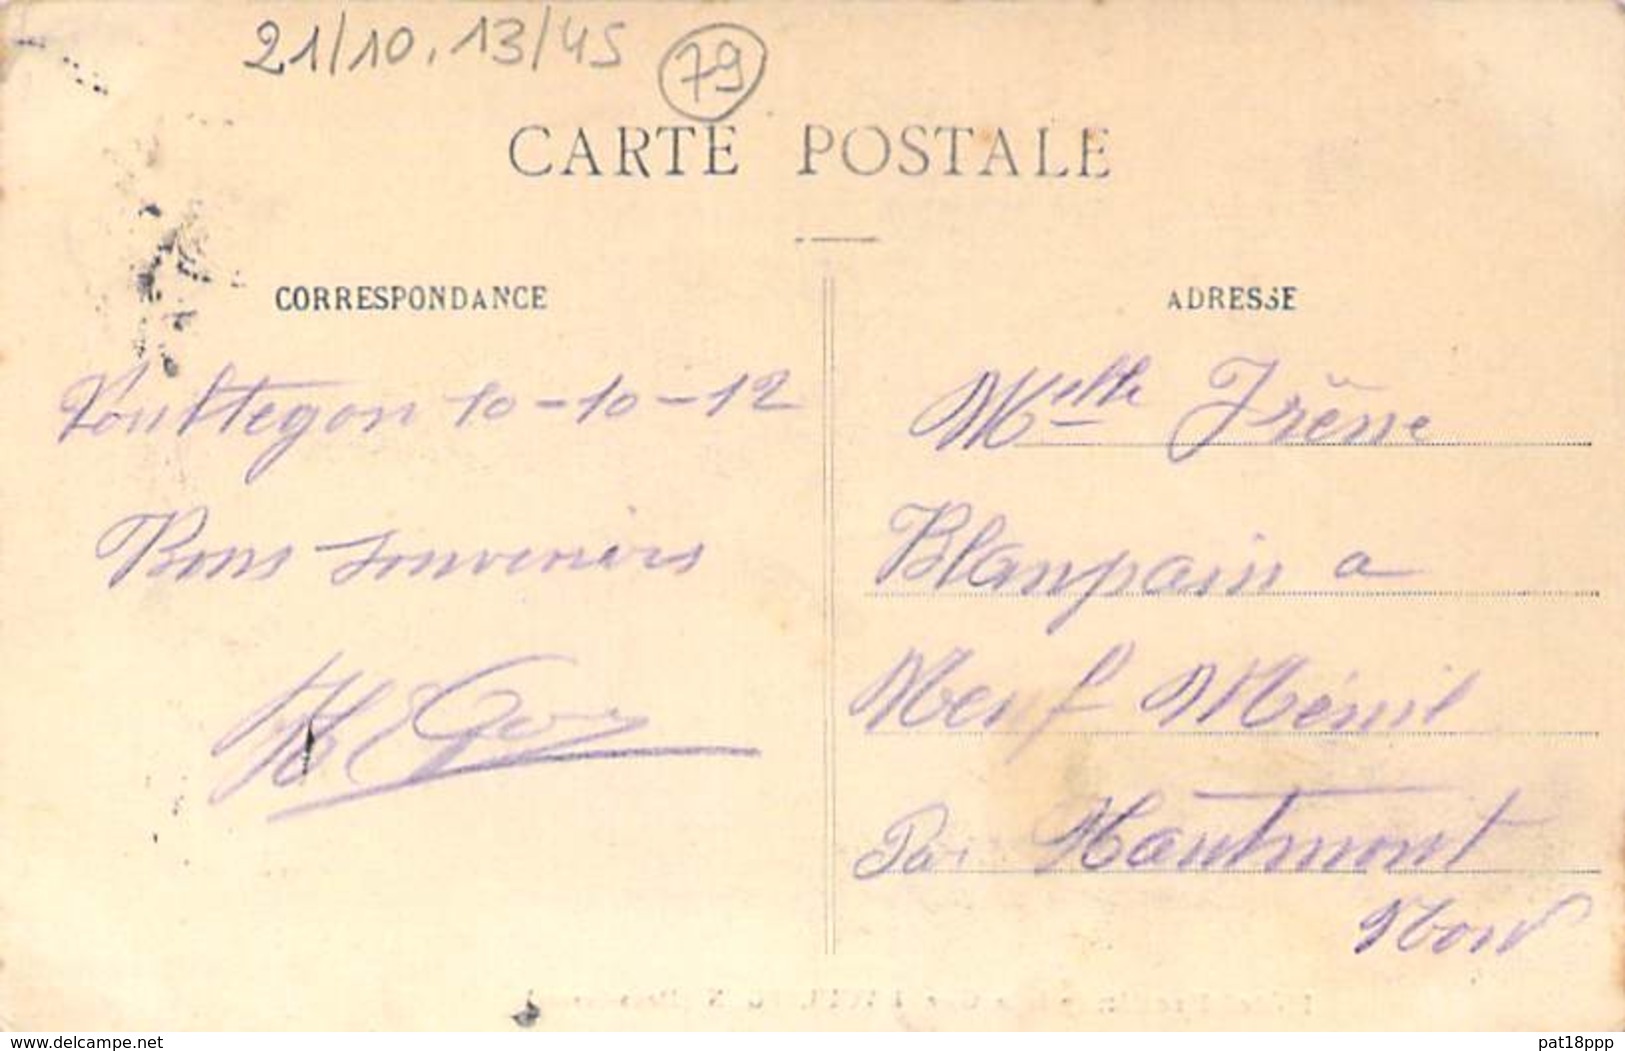 21/10.13/45 79
CARTE POSTALE
CORRESPONDANCE
Voultegon 10-10-12
Bons souvenirs
ADRESSE
Melle Irène
Blanpain a
Neuf Ménil
Par Hautmont
Nord
www.delcampe.net
pat18ppp